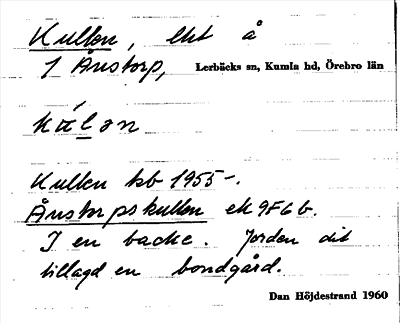 Kullen, lht å
1 Ånstorp, Lerbäcks sn, Kumla hd, Örebro län
kúlen
Kullen tsb 1955-.
Ånstorpskullen ek 9F6b.
I en backe. Jorden dit
tillagd en bondgård.
Dan Höjdestrand 1960